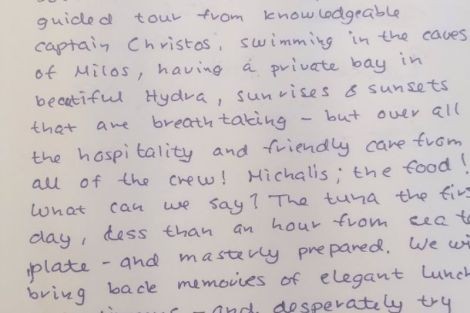 guided tour from knowledgeable
captain Christos, swimming in the caves
of Milos, having a private bay in
beautiful Hydra, sunrises & sunsets
that are breath taking - but over all
the hospitality and friendly care from
all of the crew! Michalis; the food!
What can we say? The tuna the
day, less than an hour from sea
plate - and masterly prepared. We
bring back memories of elegant
- and desperately try